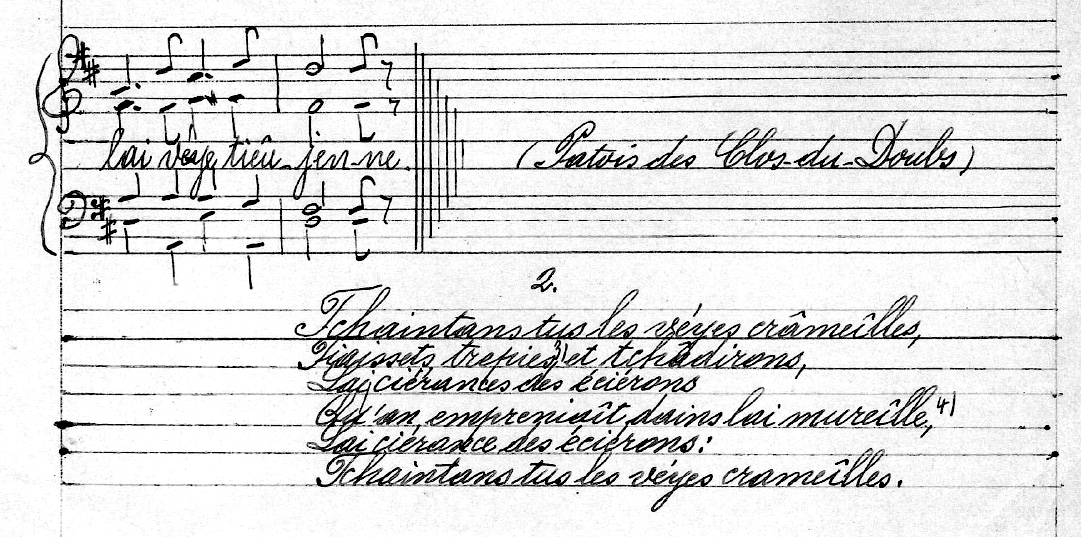 lai véye tieû-jen-ne.
(Patois des Clos-du-Doubs)
2.
Tchaintans tus les véyes crâmeîlles,
trepies 3) et tchâdirons,
Lai ciérances des éciérons
Qu'an emprenioît dains lai mureîlle, 4)
Lai ciérance des éciérons:
Tchaintans tus les véyes crameîlles.